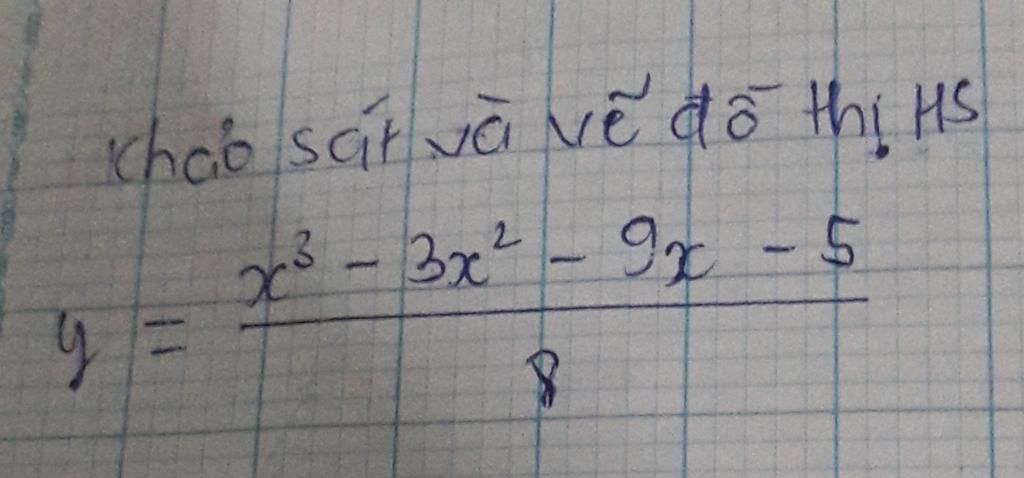 Khảo sát và vẽ đồ thị HS
y = \frac{x³ - 3x² - 9x - 5}{8}